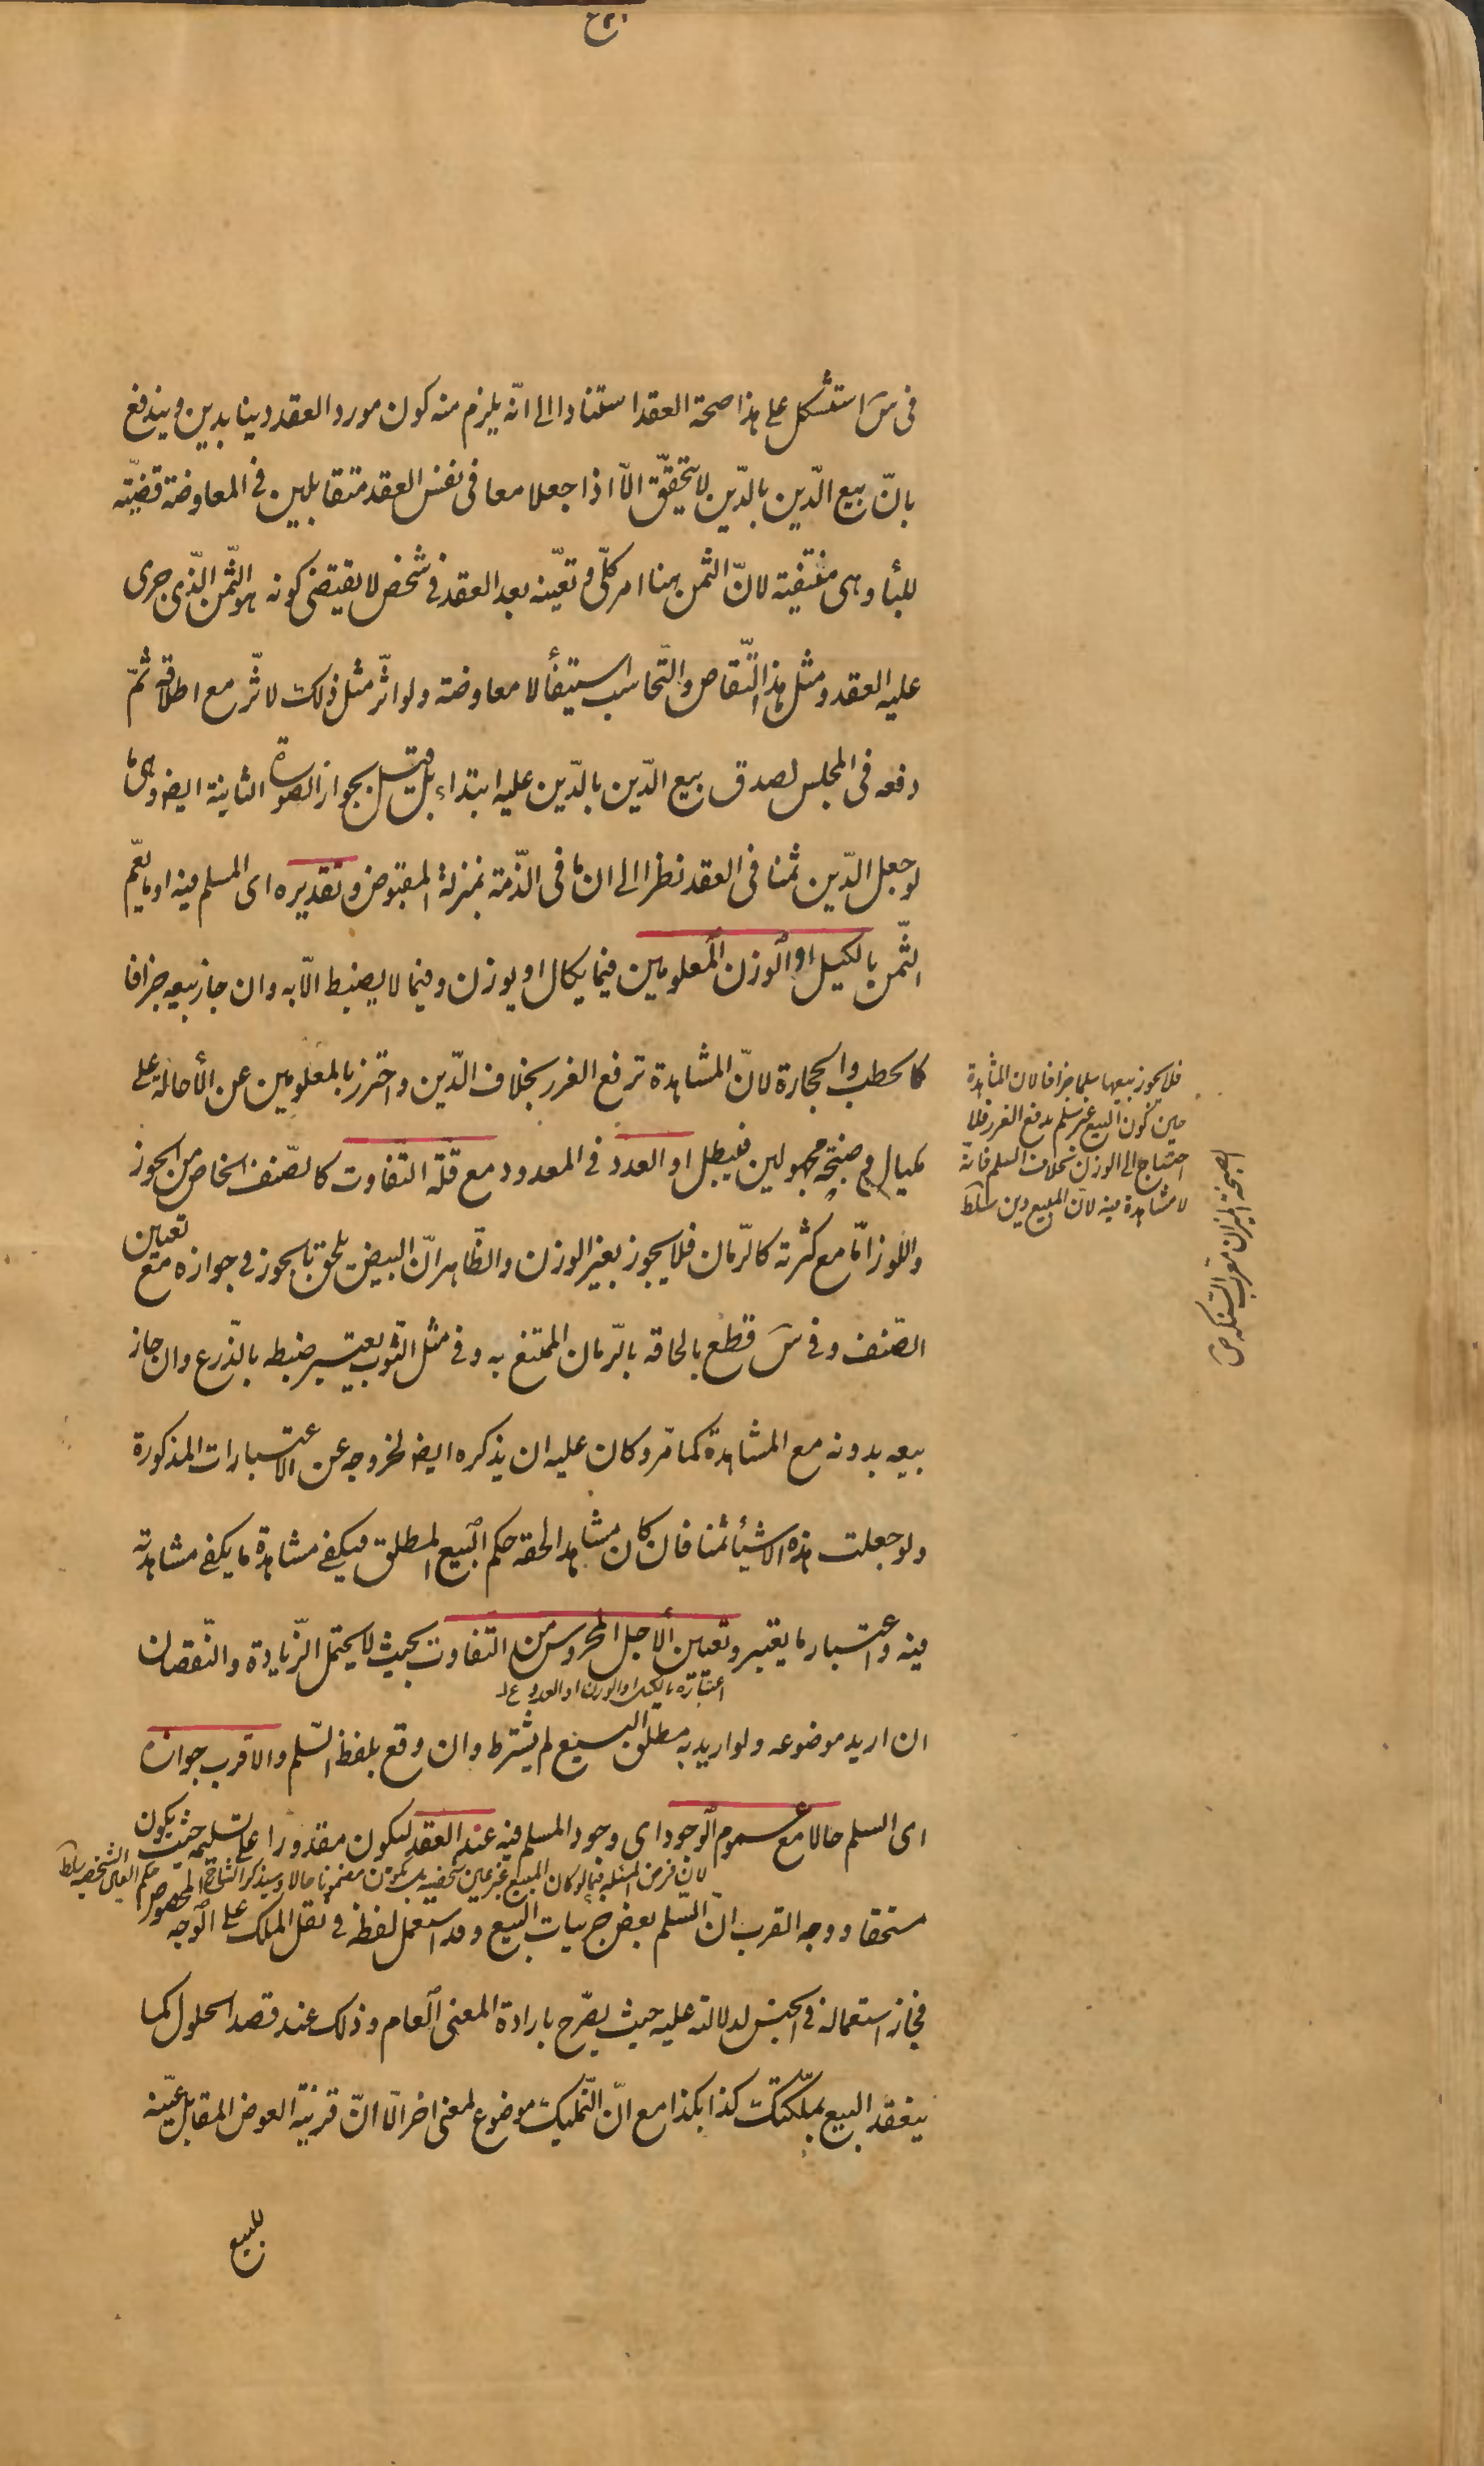 فى س استشكل على هذا صحة العقد استنادا الى انّه يلزم منه كون مورد العقد دينا بدين و يندفع
بانّ بيع الدّين بالدّين لا يتحقّق الّا اذا جعلا معا فى نفس العقد متقابلين فى المعاوضة قضيّته
للبأ وهى منتفية لانّ الثمن هنا امر كلّى و تعيّنه بعد العقد فى شخص لا يقتضى كونه هو الثّمن الّذى جرى
عليه العقد و مثل هذا التّقاص والتّحاسب استيفأ لا معاوضة ولو اثّر مثل ذلك لاثّر مع اطلاقه ثمّ
دفعه فى المجلس لصدق بيع الدّين بالدّين عليه ابتداء بل قيل بجواز الصورة الثانية ايض وهى ما
لو جعل الدّين ثمنا فى العقد نظرا الى ان ما فى الذّمة بمنزلة المقبوض و تقديره اى المسلم فيه او ما يعمّ
الثّمن بالكيل او الوزن المعلومين فيما يكال او يوزن و فيما لا يضبط الّا به و ان جاز بيعه جزافا
كالحطب والحجارة لانّ المشاهدة ترفع الغرر بخلاف الدّين و احترز بالمعلومين عن الأحالة على
مكيال و صنجة مجهولين فيبطل او العدد فى المعدود مع قلّة التفاوت كالصّنف الخاص من الجوز
واللوز امّا مع كثرته كالرّمان فلا يجوز بغير الوزن والظّاهر انّ البيض يلحق بالجوز فى جوازه مع تعيين
الصّنف و فى س قطع بالحاقه بالرّمان الممتنع به و فى مثل الثّوب يعتبر ضبطه بالذّرع و ان جاز
بيعه بدونه مع المشاهدة كما مّر و كان عليه ان يذكره ايض لخروجه عن الاعتبارات المذكورة
ولو جعلت هذه الاشيأ ثمنا فان كان مشاهدا لحقه حكم البيع المطلق فيكفى مشاهدة ما يكفى مشاهدته
فيه و اعتبار ما يعتبر و تعيين الأجل المحروس من التفاوت بحيث لا يحتمل الزّيادة والنّقصان
اعتباره بالكيل او الوزن او العدد
ان اريد موضوعه ولو اريد به مطلق البيع لم يشترط و ان وقع بلفظ السّلم والاقرب جوازه
اى السلم حالا مع عموم الوجود اى وجود المسلم فيه عند العقد ليكون مقدورا على تسليمه حيث يكون
لان فرض المسئلة فيما لو كان المبيع غير عين شخصية بل يكون مضمونا حالا و سيذكر الشارح حكم العين الشخصية سلط
مستحقا و وجه القرب انّ السّلم بعض جزئيات البيع و قد استعمل لفظه فى نقل الملك على الوجه المخصوص
فجاز استعماله فى الجنس لدلالته عليه حيث يصرّح بارادة المعنى العام و ذلك عند قصد الحلول كما
ينعقد البيع بملّكتك كذا بكذا مع انّ التّمليك موضوع لمعنى اخر الّا انّ قرينة العوض المقابل عيّنه
للبيع
فلا يجوز بيعها سلما جزافا لان المشاهدة
حين كون البيع غير سلم يدفع الغرر فلا
احتياج الى الوزن بخلاف السلم فانه
لا مشاهدة فيه لان المبيع دين سلط
الصنجة الميزان معرب السنكه ص